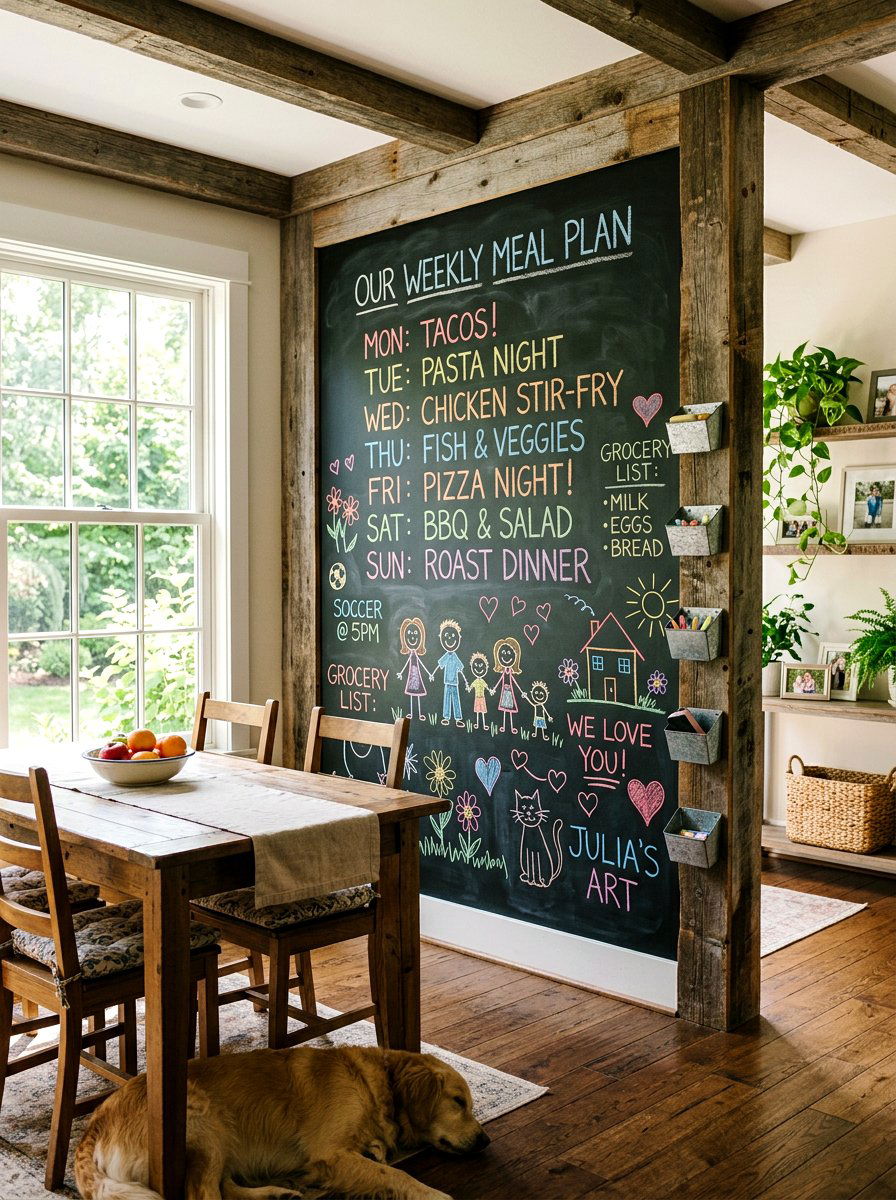 OUR WEEKLY MEAL PLAN
MON: TACOS!
TUE: PASTA NIGHT
WED: CHICKEN STIR-FRY
THU: FISH & VEGGIES
FRI: PIZZA NIGHT!
SAT: BBQ & SALAD
SUN: ROAST DINNER
GROCERY
LIST:
•MILK
•EGGS
•BREAD
SOCCER
@ 5PM
GROCERY
LIST:
WE LOVE
YOU!
JULIA'S
ART